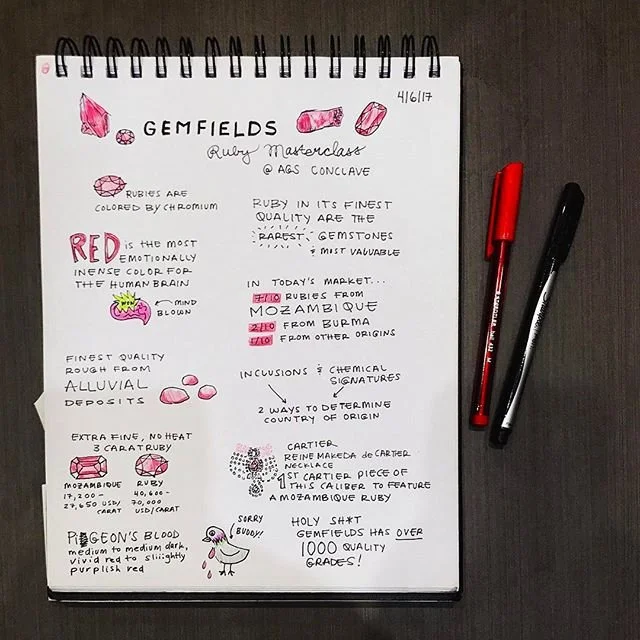 4/6/17
GEMFIELDS
Ruby Masterclass
@ AGS CONCLAVE
RUBIES ARE
COLORED BY CHROMIUM
RED IS THE MOST
EMOTIONALLY
INENSE COLOR FOR
THE HUMAN BRAIN
WOW
← MIND
BLOWN
FINEST QUALITY
ROUGH FROM
ALLUVIAL
DEPOSITS
EXTRA FINE, NO HEAT
3 CARAT RUBY
MOZAMBIQUE
17,200-
27,650 USD/
CARAT
RUBY
40,600-
70,000
USD/CARAT
PIDGEON'S BLOOD
medium to medium dark,
vivid red to sliiightly
purplish red
SORRY
BUDDY!
RUBY IN ITS FINEST
QUALITY ARE THE
RAREST GEMSTONES
& MOST VALUABLE
IN TODAY'S MARKET...
7/10 RUBIES FROM
MOZAMBIQUE
2/10 FROM BURMA
1/10 FROM OTHER ORIGINS
INCLUSIONS & CHEMICAL
SIGNATURES
2 WAYS TO DETERMINE
COUNTRY OF ORIGIN
CARTIER
REINE MAKEDA de CARTIER
NECKLACE
1ST CARTIER PIECE OF
THIS CALIBER TO FEATURE
A MOZAMBIQUE RUBY
HOLY SH*T
GEMFIELDS HAS OVER
1000 QUALITY
GRADES!